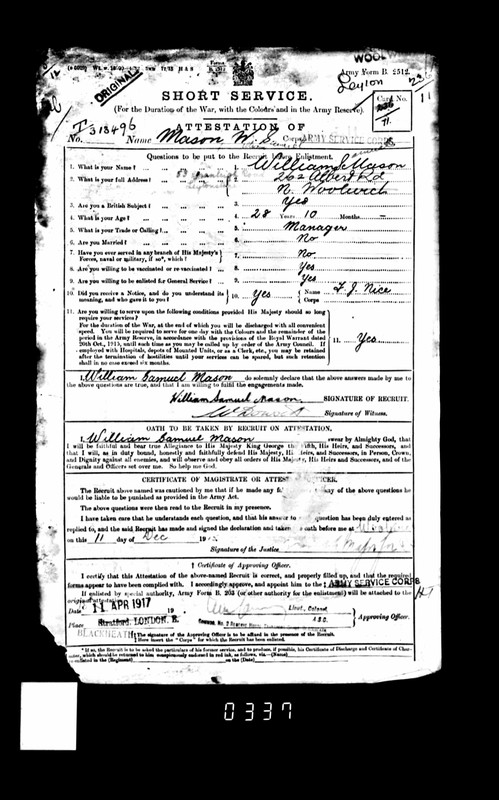 WOOL
ORIGINAL
Army Form B. 2512.
Leyton
SHORT SERVICE.
(For the Duration of the War, with the Colours and in the Army Reserve).
Card No.
71.
ATTESTATION OF
No. T 318496 Name Mason W. S. Corps ARMY SERVICE CORPS
Questions to be put to the Recruit before Enlistment.
1. What is your Name? 1. William S Mason
2. What is your full Address? 2. 262 Albert Rd
N. Woolwich
3. Are you a British Subject? 3. Yes
4. What is your Age? 4. 28 Years 10 Months
5. What is your Trade or Calling? 5. Manager
6. Are you Married? 6. No
7. Have you ever served in any branch of His Majesty's
Forces, naval or military, if so*, which? 7. No.
8. Are you willing to be vaccinated or re-vaccinated? 8. Yes
9. Are you willing to be enlisted for General Service? 9. Yes
10. Did you receive a Notice, and do you understand its
meaning, and who gave it to you? 10. Yes Name F J. Nice
Corps
11. Are you willing to serve upon the following conditions provided His Majesty should so long
require your services?
For the duration of the War, at the end of which you will be discharged with all convenient
speed. You will be required to serve for one day with the Colours and the remainder of the
period in the Army Reserve, in accordance with the provisions of the Royal Warrant dated
20th Oct., 1915, until such time as you may be called up by order of the Army Council. If
employed with Hospitals, depots of Mounted Units, or as a Clerk, etc., you may be retained
after the termination of hostilities until your services can be spared, but such retention
shall in no case exceed six months. 11. Yes
I, William Samuel Mason do solemnly declare that the above answers made by me to
the above questions are true, and that I am willing to fulfil the engagements made.
William Samuel Mason. SIGNATURE OF RECRUIT.
Signature of Witness.
OATH TO BE TAKEN BY RECRUIT ON ATTESTATION.
I, William Samuel Mason swear by Almighty God, that
I will be faithful and bear true Allegiance to His Majesty King George the Fifth, His Heirs, and Successors, and
that I will, as in duty bound, honestly and faithfully defend His Majesty, His Heirs, and Successors, in Person, Crown,
and Dignity against all enemies, and will observe and obey all orders of His Majesty, His Heirs and Successors, and of the
Generals and Officers set over me. So help me God.
CERTIFICATE OF MAGISTRATE OR ATTESTING OFFICER.
The Recruit above named was cautioned by me that if he made any false answer to any of the above questions he
would be liable to be punished as provided in the Army Act.
The above questions were then read to the Recruit in my presence.
I have taken care that he understands each question, and that his answer to each question has been duly entered as
replied to, and the said Recruit has made and signed the declaration and taken the oath before me at
on this 11 day of Dec 19
Signature of the Justice
† Certificate of Approving Officer.
I certify that this Attestation of the above-named Recruit is correct, and properly filled up, and that the required
forms appear to have been complied with. I accordingly approve, and appoint him to the ‡ ARMY SERVICE CORPS
If enlisted by special authority, Army Form B. 203 (or other authority for the enlistment) will be attached to the
original attestation.
Date 11 APR 1917 19
Lieut. Colonel
A.S.C.
Place Stratford, LONDON, E.
Approving Officer.
BLACKHEATH
† The signature of the Approving Officer is to be affixed in the presence of the Recruit.
‡ Here insert the "Corps" for which the Recruit has been enlisted.
* If so, the Recruit is to be asked the particulars of his former service, and to produce, if possible, his Certificate of Discharge and Certificate of Character,
which should be returned to him conspicuously endorsed in red ink, as follows, viz.—(Name)
re-enlisted in the (Regiment) on the (Date)
0337